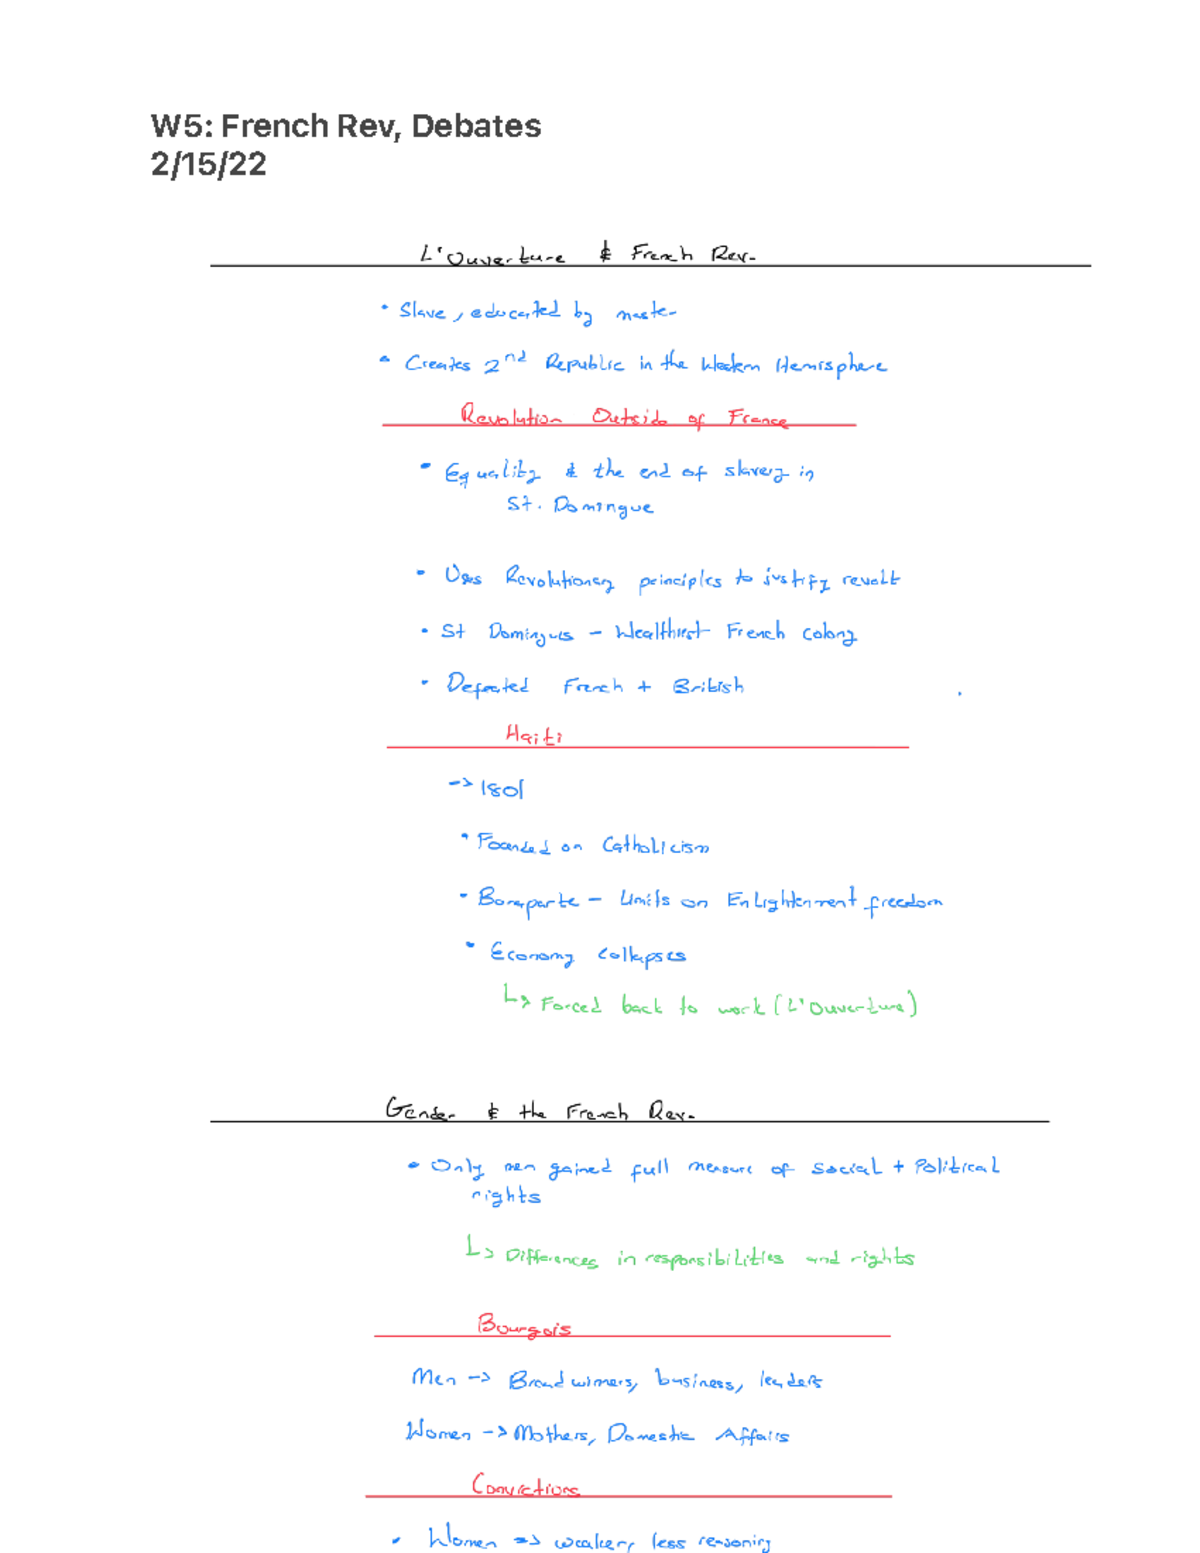 W5: French Rev, Debates
2/15/22
L'Ouverture & French Rev.
• Slave, educated by master
• Creates 2nd Republic in the Western Hemisphere
Revolution Outside of France
• Equality & the end of slavery in
St. Domingue
• Uses Revolutionary principles to justify revolt
• St Domingue – Wealthiest French colony
• Defeated French + British
Haiti
-> 1801
• Founded on Catholicism
• Bonaparte – Limits on Enlightenment freedom
• Economy collapses
↳ Forced back to work (L'Ouverture)
Gender & the French Rev.
• Only men gained full measure of social + Political
rights
↳ Differences in responsibilities and rights
Bourgois
Men -> Breadwinners, business, leaders
Women -> Mothers, Domestic Affairs
Convictions
• Women => weaker, less reasoning